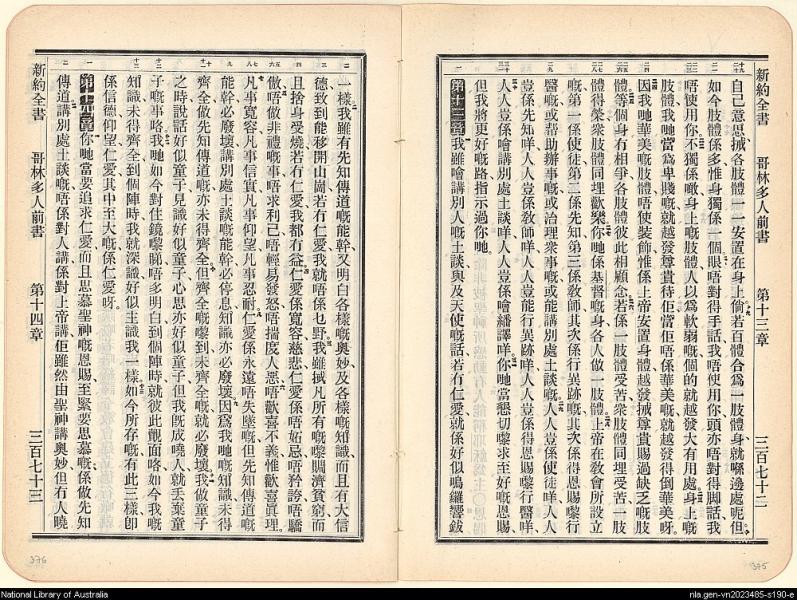 新約全書 哥林多人前書 第十三章 三百七十二
自己意思搣各肢體一一安置在身上倘若百體合為一肢體身就喺邊處呢但
如今肢體係多惟身獨係一個眼唔對得手話我唔使用你頭亦唔對得脚話我
唔使用你不獨係噉身上嘅肢體人以為軟弱嘅個的就越發大有用處身上
肢體我哋當為卑賤嘅就越發尊貴待佢當佢唔係華美嘅就越發得倒華美呀
因我哋華美嘅肢體唔使裝飾惟係上帝安置身體越發搣尊貴賜過缺乏嘅肢
體等個身冇相爭各肢體彼此相顧念若係一肢體受苦衆肢體同埋受苦一肢
體得榮衆肢體同埋歡樂你哋係基督嘅身各人做一肢體上帝在教會所設立
嘅第一係使徒第二係先知第三係教師其次係行異跡嘅其次係得恩賜嚟行
醫嘅或帮助辦事嘅或治理衆事嘅或能講別處土談嘅人人豈係使徒咩人人
豈係先知咩人人豈係教師咩人人豈能行異跡咩人人豈係得恩賜嚟行醫咩
人人豈係噲講別處土談咩人人豈係噲繙譯咩你哋當懇切嚟求至好嘅恩賜
但我將更好嘅路指示過你哋
第十三章我雖噲講別人嘅土談與及天使嘅話若冇仁愛就係好似鳴鑼響鈸
一樣我雖有先知傳道嘅能幹又明白各樣嘅奧妙及各樣嘅知識而且有大信
德致到能移開山崗若冇仁愛我就唔係乜野我雖搣凡所有嘅嚟賙濟貧窮而
且捨身受燒若冇仁愛我都冇益仁愛係寬容慈悲仁愛係唔妬忌唔矜誇唔驕
傲唔做非禮嘅事唔求利己唔輕易發怒唔揣度人惡唔歡喜不義惟歡喜眞理
凡事寬容凡事信實凡事仰望凡事忍耐仁愛係永遠唔失墜嘅但先知傳道嘅
能幹必廢壞講別處土談嘅能幹必停息知識亦必廢壞因爲我哋嘅知識未得
齊全做先知傳道嘅亦未得齊全但齊全嘅嚟到未齊全嘅就必廢壞我做童子
之時說話好似童子見識好似童子心思亦好似童子但我旣放曉人就丢棄童
子嘅事咯我哋如今對住鏡嚟睇唔多明白到個陣時就彼此覿面咯如今我嘅
知識未得齊全到個陣時我就深識好似主識我一樣如今所存嘅有此三樣卽
係信德仰望仁愛其中至大嘅係仁愛呀
第十四章你哋當要追求仁愛而且思慕聖神嘅恩賜至緊要思慕嘅係做先知
傳道講別處土談嘅唔係對人講係對上帝講佢雖然由聖神講奧妙但冇人曉
新約全書 哥林多人前書 第十四章 三百七十三
376
375
National Library of Australia
nla.gen-vn2023485-s190-e